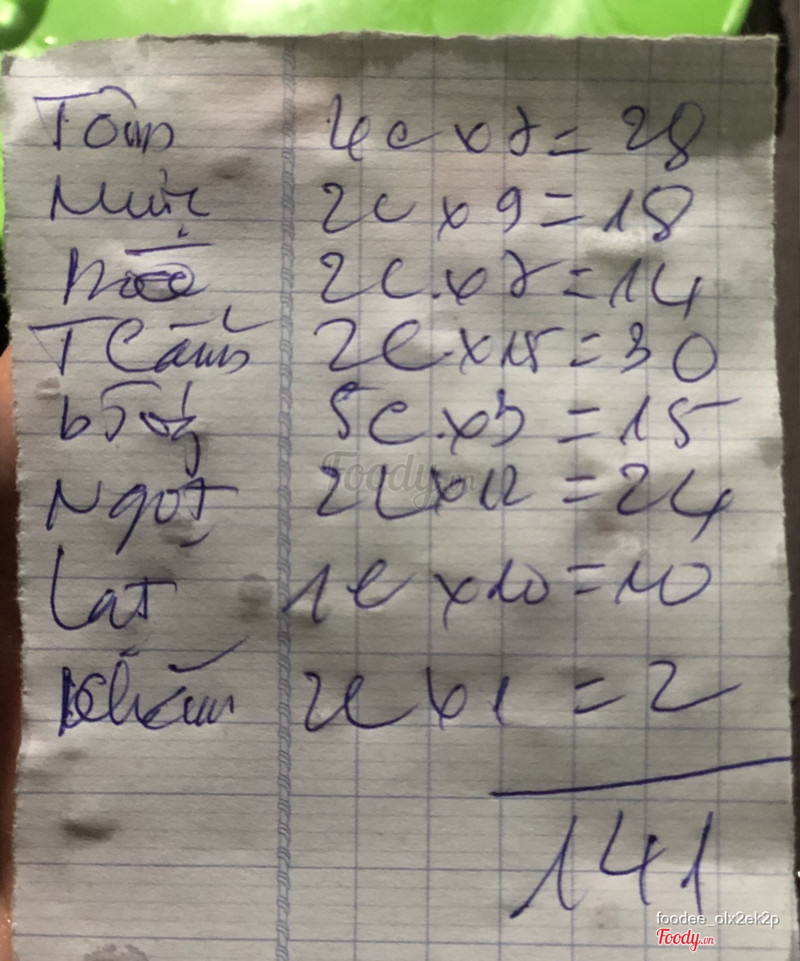 Tôm 4c x 7 = 28
Mực 2c x 9 = 18
2c x 7 = 14
T Cẩm 2c x 15 = 30
5c x 3 = 15
Foody.vn
Ngọt 2L x 12 = 24
Lạt 1c x 10 = 10
Khăn 2c x 1 = 2
141
foodee_olx2ek2p
Foody.vn